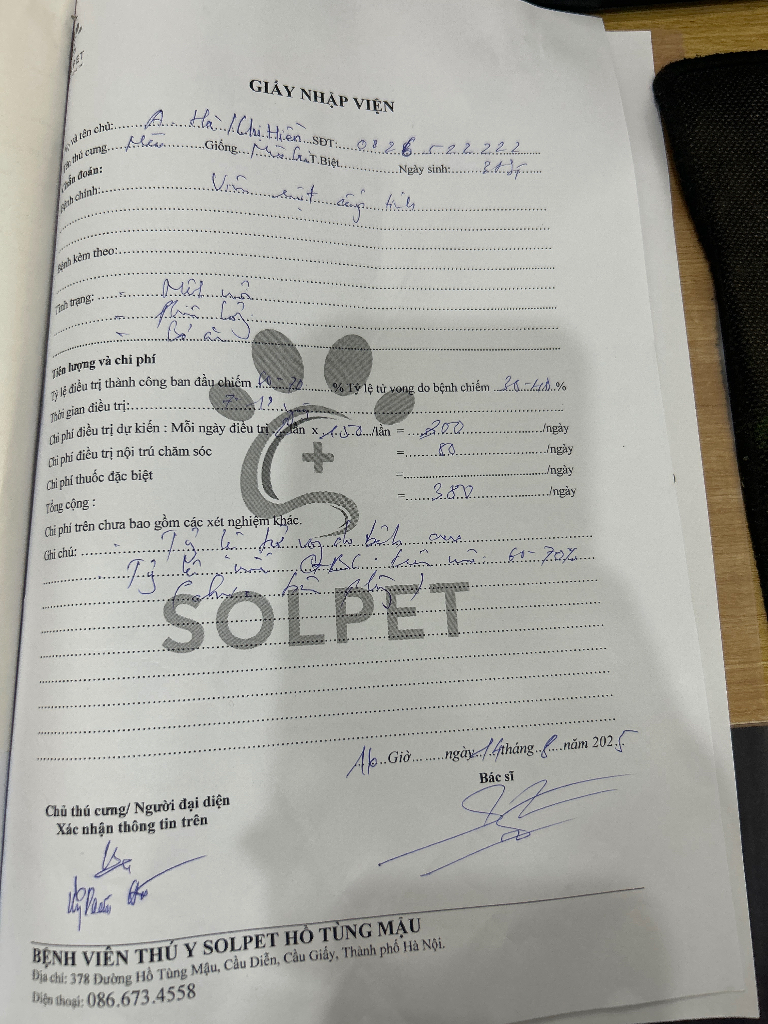 PET
GIẤY NHẬP VIỆN
và tên chủ: A Hà / Chị Hiền SĐT: 0826 522 222
thú cưng Mèo Giống T.Biệt Ngày sinh:
Chẩn đoán:
Bệnh chính: Viêm ruột cấp tính
Bệnh kèm theo:
Tình trạng: - Mệt mỏi
-
- Bỏ ăn
Tiên lượng và chi phí
Tỷ lệ điều trị thành công ban đầu chiếm 60-70 % Tỷ lệ tử vong do bệnh chiếm 30-40 %
Thời gian điều trị: 7-
Chi phí điều trị dự kiến : Mỗi ngày điều trị 2 lần x 150 /lần = 300 /ngày
Chi phí điều trị nội trú chăm sóc = 80 /ngày
Chi phí thuốc đặc biệt = /ngày
Tổng cộng : = 380 /ngày
Chi phí trên chưa bao gồm các xét nghiệm khác.
Ghi chú: - Tỷ lệ tử vong do bệnh cao
Tỷ lệ 60-70%
SOLPET
16 Giờ ngày 14 tháng 8 năm 2025
Bác sĩ
Chủ thú cưng/ Người đại diện
Xác nhận thông tin trên
BỆNH VIỆN THÚ Y SOLPET HỒ TÙNG MẬU
Địa chỉ: 378 Đường Hồ Tùng Mậu, Cầu Diễn, Cầu Giấy, Thành phố Hà Nội.
Điện thoại: 086.673.4558